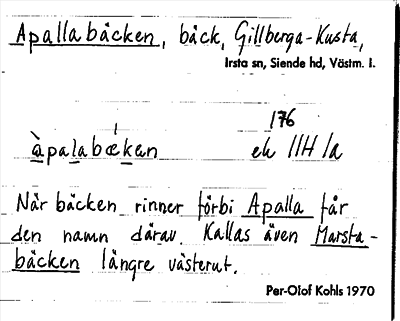 Apallabäcken, bäck, Gillberga-Kusta,
Irsta sn, Siende hd, Västm. l.
176
àpalabœ́ken ek 11H 1a
När bäcken rinner förbi Apalla får
den namn därav. Kallas även Marsta-
bäcken längre västerut.
Per-Olof Kohls 1970